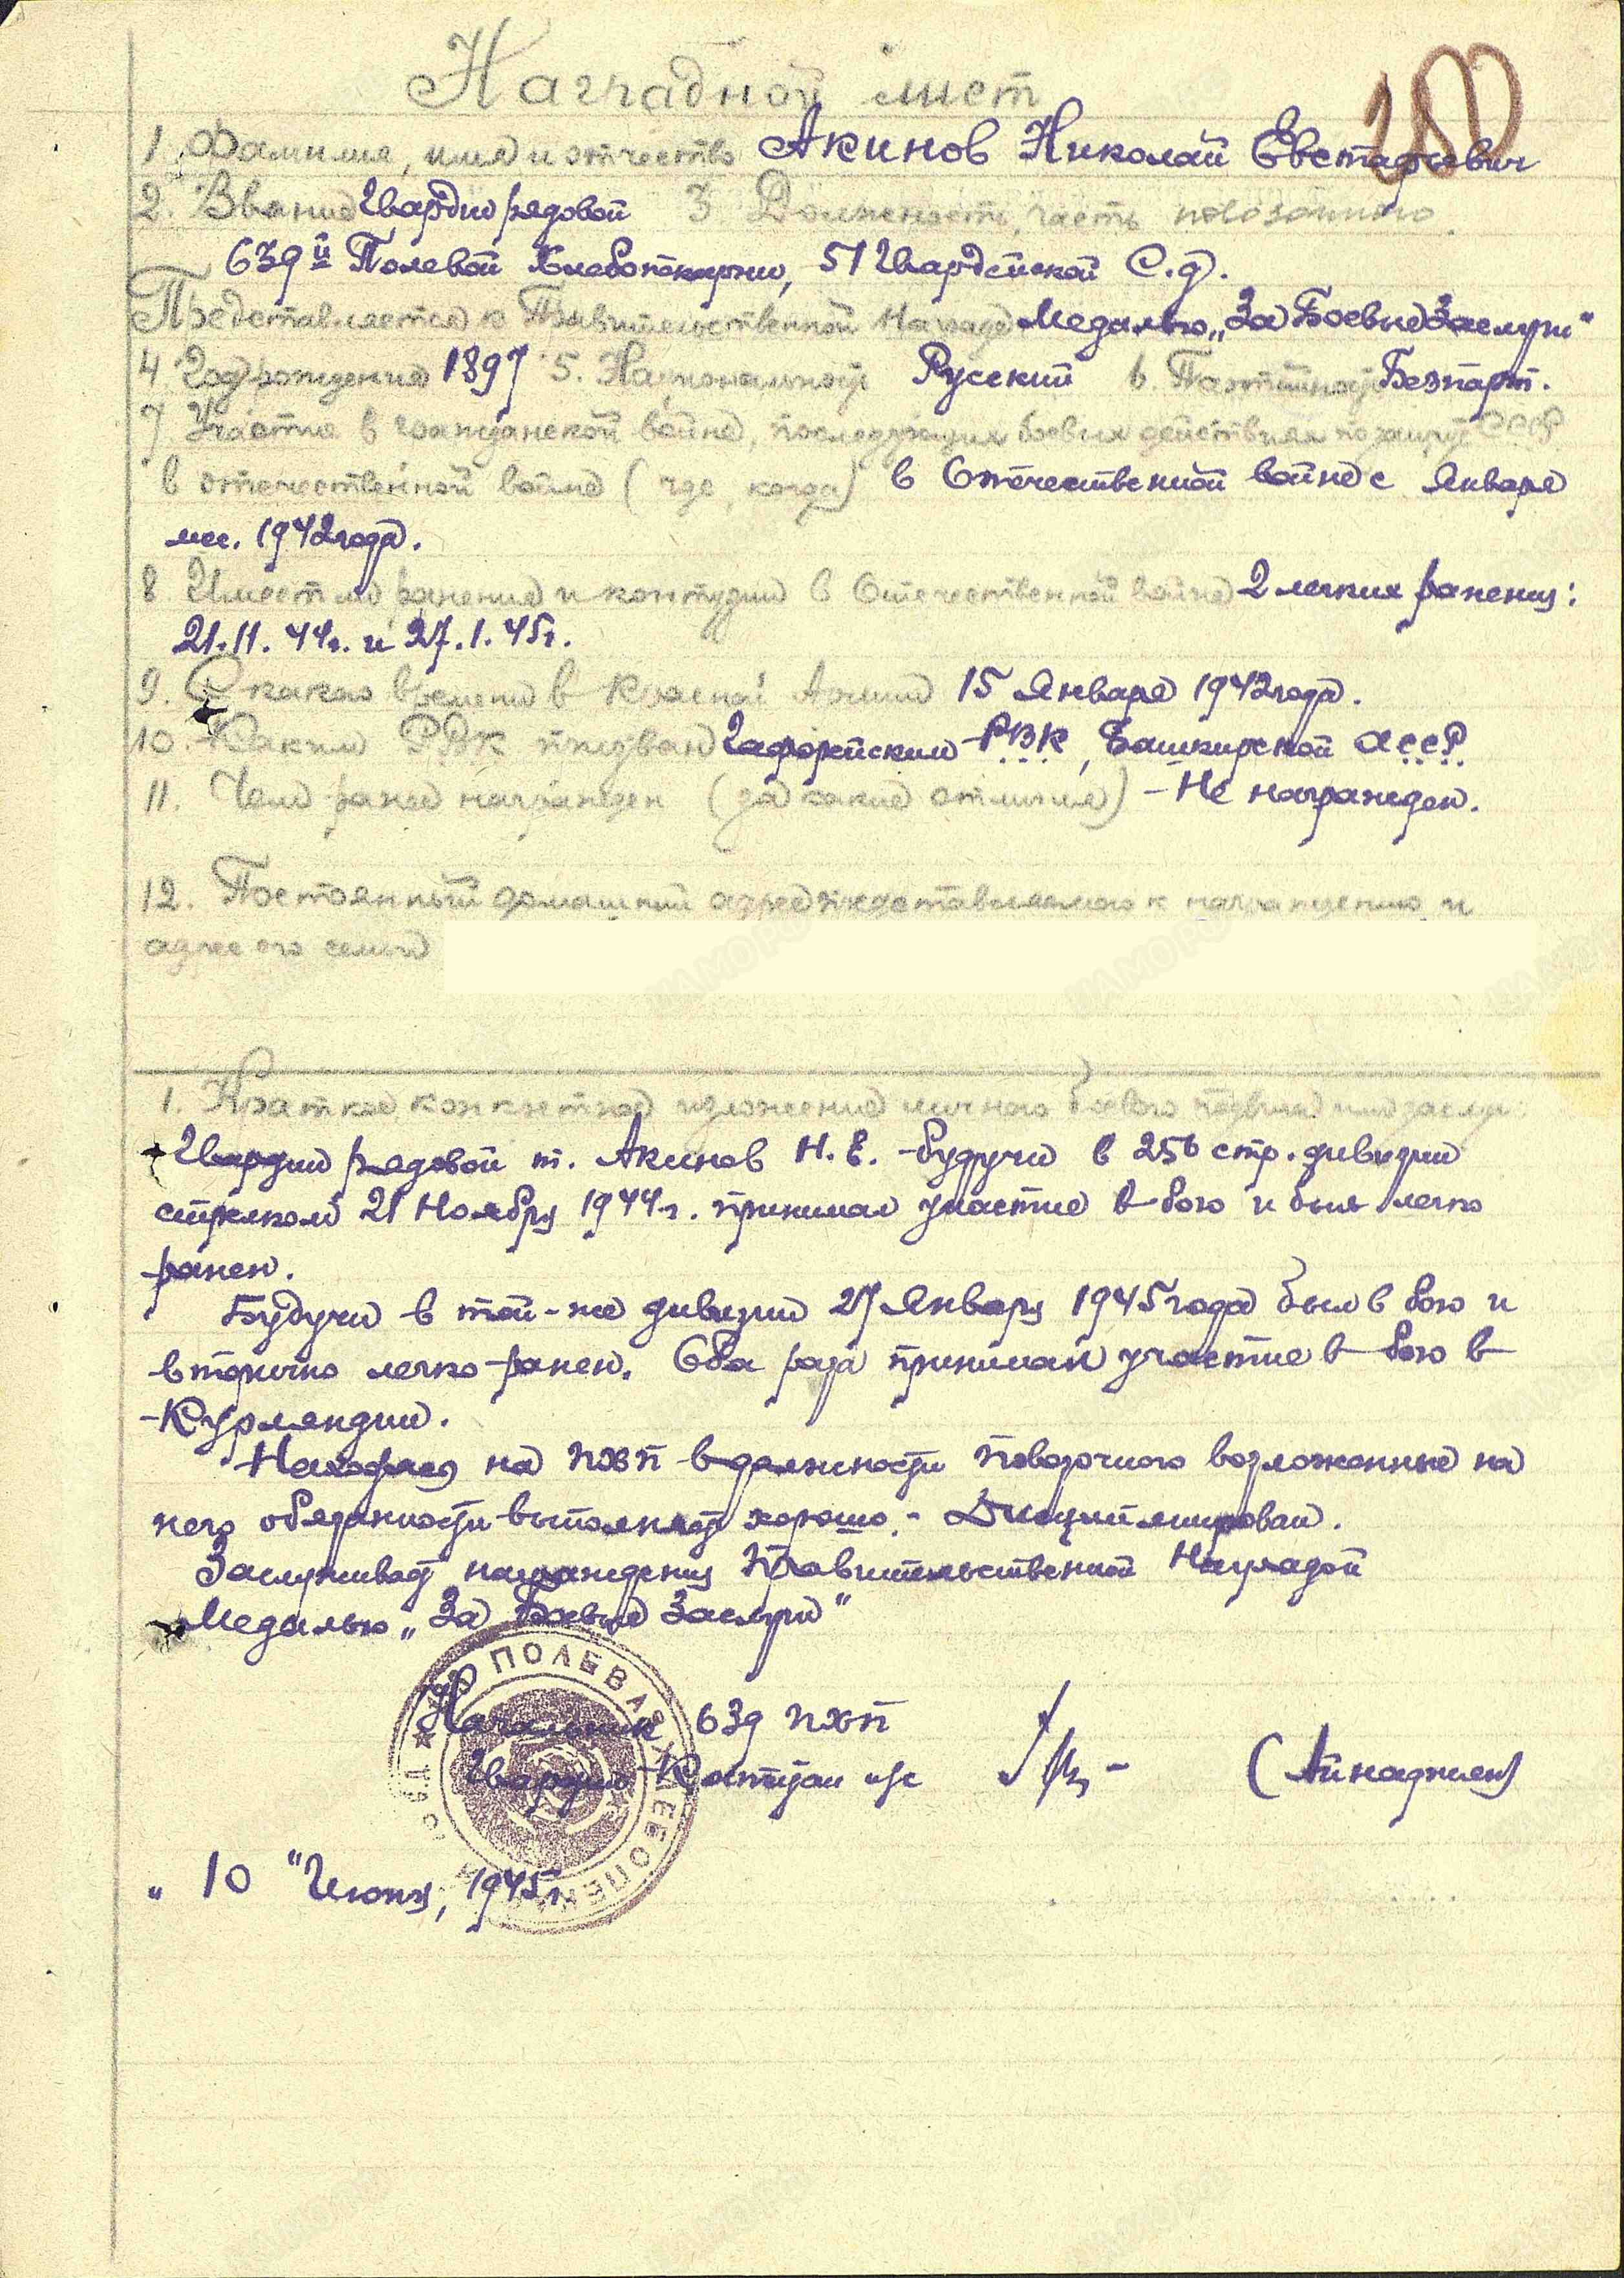 Наградной лист
180
1. Фамилия, имя и отчество Акинов Николай Евстафьевич
2. Звание Гвардии рядовой 3. Должность, часть повозочного
639й Полевой Хлебопекарни, 51 Гвардейской С.д.
Представляется к Правительственной Награде Медалью „За Боевые Заслуги"
4. Год рождения 1897 5. Национальность Русский 6. Партийность Безпарт.
7. Участие в гражданской войне, последующих боевых действиях по защите СССР
в отечественной войне (где, когда) в Отечественной войне с Января
мес. 1942 года.
8. Имеет ли ранения и контузии в Отечественной войне 2 легких ранения:
21.11.44г. и 27.1.45г.
9. С какого времени в Красной Армии 15 Января 1942 года.
10. Каким РВК призван Гафурийским РВК, Башкирской АССР
11. Чем ранее награжден (за какие отличия) - Не награжден.
12. Постоянный домашний адрес представляемого к награждению и
адрес его семьи
1. Краткое, конкретное изложение личного боевого подвига или заслуг:
Гвардии рядовой т. Акинов Н.Е. будучи в 256 стр. дивизии
стрелком 21 Ноября 1944г. принимал участие в бою и был легко
ранен.
Будучи в той-же дивизии 27 Января 1945 года был в бою и
вторично легко ранен. Оба раза принимал участие в бою в
Курляндии.
Находясь на ПХП в должности повозочного возложенные на
него обязанности выполняет хорошо. - Дисциплинирован.
Заслуживает награждения Правительственной Наградой
Медалью „За Боевые Заслуги"
ПОЛЕВАЯ ХЛЕБОПЕКАРНЯ
Начальник 639 ПХП
Гвардии Капитан и/с (Айнаджиев)
„10" Июня, 1945г.